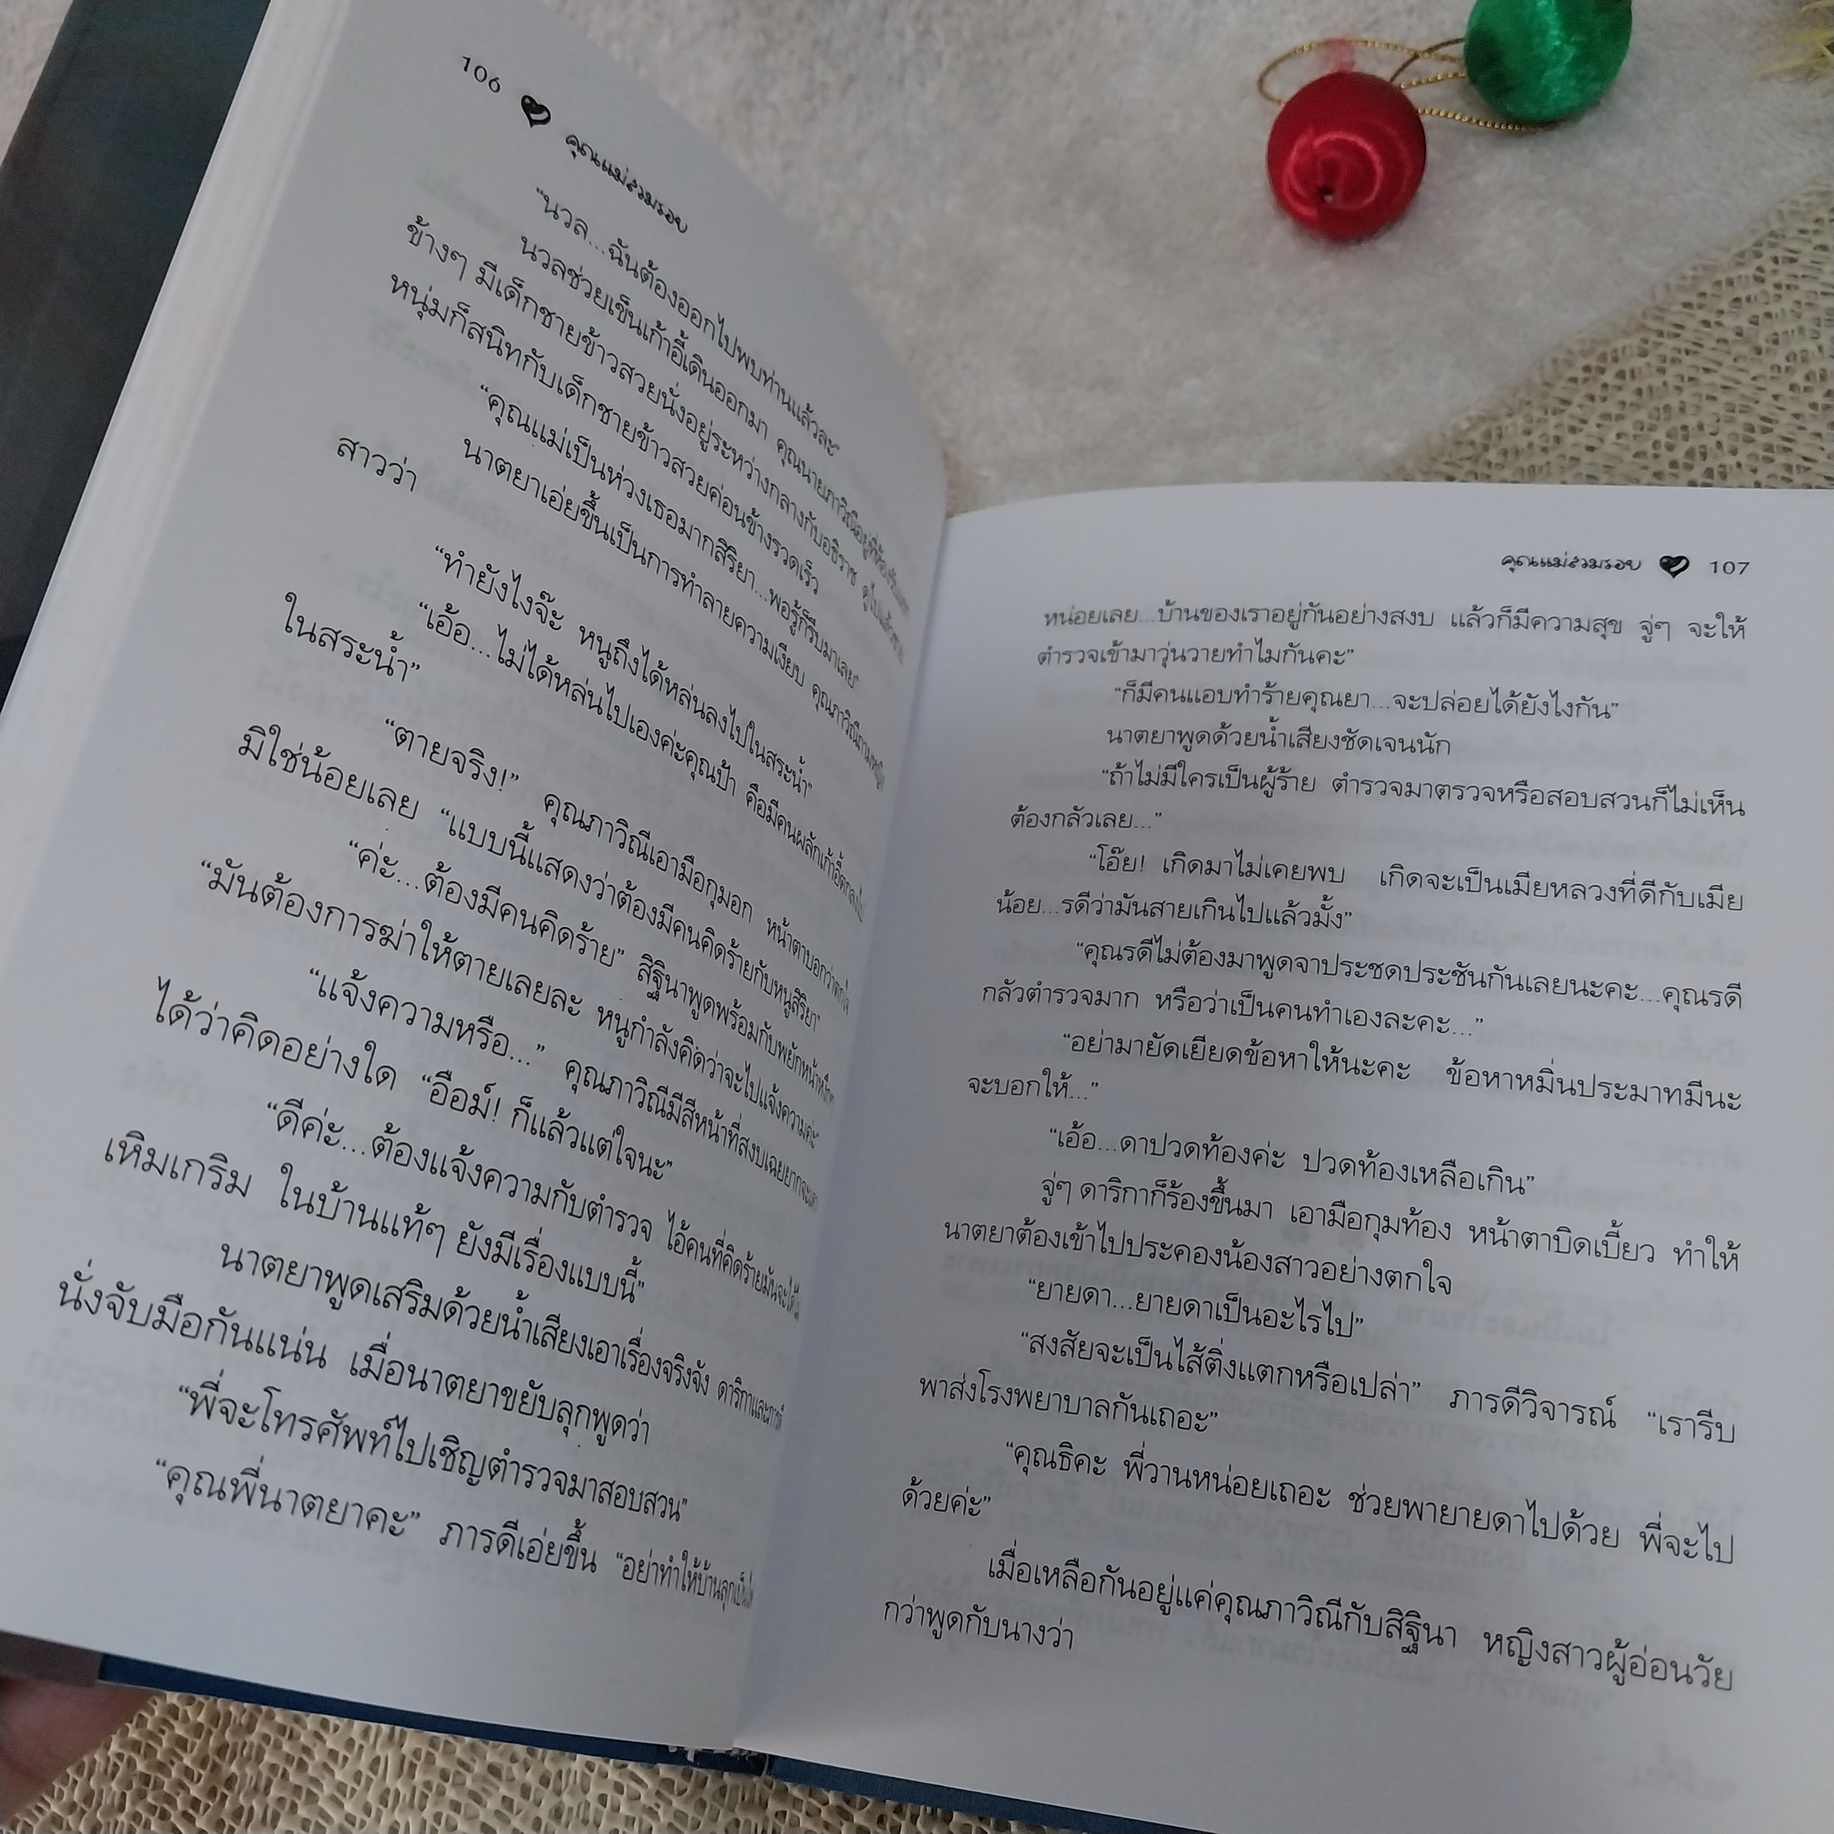 106 คุณแม่สวมรอย
“นวล...ฉันต้องออกไปพบท่านแล้วละ”
นวลช่วยเข็นเก้าอี้เดินออกมา คุณนายภาวิณีอยู่ที่ห้องรับแขก
ข้างๆ มีเด็กชายข้าวสวยนั่งอยู่ระหว่างกลางกับอธิราช ดูไปแล้วชาย
หนุ่มก็สนิทกับเด็กชายข้าวสวยค่อนข้างรวดเร็ว
“คุณแม่เป็นห่วงเธอมากสิริยา...พอรู้ก็รีบมาเลย”
นาตยาเอ่ยขึ้นเป็นการทำลายความเงียบ คุณภาวิณีถามหญิง
สาวว่า
“ทำยังไงจ๊ะ หนูถึงได้หล่นลงไปในสระน้ำ”
“เอ้อ...ไม่ได้หล่นไปเองค่ะคุณป้า คือมีคนผลักเก้าอี้ตกลงไป
ในสระน้ำ”
“ตายจริง!” คุณภาวิณีเอามือกุมอก หน้าตาบอกว่าตกใจ
มิใช่น้อยเลย “แบบนี้แสดงว่าต้องมีคนคิดร้ายกับหนูสิริยา”
“ค่ะ...ต้องมีคนคิดร้าย” สิฐินาพูดพร้อมกับพยักหน้า
“มันต้องการฆ่าให้ตายเลยละ หนูกำลังคิดว่าจะไปแจ้งความค่ะ”
“แจ้งความหรือ...” คุณภาวิณีมีสีหน้าที่สงบเฉยยากจะเดา
ได้ว่าคิดอย่างใด “อือม์! ก็แล้วแต่ใจนะ”
“ดีค่ะ...ต้องแจ้งความกับตำรวจ ไอ้คนที่คิดร้ายมันจะได้ไม่
เหิมเกริม ในบ้านแท้ๆ ยังมีเรื่องแบบนี้”
นาตยาพูดเสริมด้วยน้ำเสียงเอาเรื่องจริงจัง ดาริกาและภารดี
นั่งจับมือกันแน่น เมื่อนาตยาขยับลุกพูดว่า
“พี่จะโทรศัพท์ไปเชิญตำรวจมาสอบสวน”
“คุณพี่นาตยาคะ” ภารดีเอ่ยขึ้น “อย่าทำให้บ้านลุกเป็นไฟ
คุณแม่สวมรอย 107
หน่อยเลย...บ้านของเราอยู่กันอย่างสงบ แล้วก็มีความสุข จู่ๆ จะให้
ตำรวจเข้ามาวุ่นวายทำไมกันคะ”
“ก็มีคนแอบทำร้ายคุณยา...จะปล่อยได้ยังไงกัน”
นาตยาพูดด้วยน้ำเสียงชัดเจนนัก
“ถ้าไม่มีใครเป็นผู้ร้าย ตำรวจมาตรวจหรือสอบสวนก็ไม่เห็น
ต้องกลัวเลย...”
“โอ๊ย! เกิดมาไม่เคยพบ เกิดจะเป็นเมียหลวงที่ดีกับเมีย
น้อย...รดีว่ามันสายเกินไปแล้วมั้ง”
“คุณรดีไม่ต้องมาพูดจาประชดประชันกันเลยนะคะ...คุณรดี
กลัวตำรวจมาก หรือว่าเป็นคนทำเองละคะ...”
“อย่ามายัดเยียดข้อหาให้นะคะ ข้อหาหมิ่นประมาทมีนะ
จะบอกให้...”
“เอ้อ...ดาปวดท้องค่ะ ปวดท้องเหลือเกิน”
จู่ๆ ดาริกาก็ร้องขึ้นมา เอามือกุมท้อง หน้าตาบิดเบี้ยว ทำให้
นาตยาต้องเข้าไปประคองน้องสาวอย่างตกใจ
“ยายดา...ยายดาเป็นอะไรไป”
“สงสัยจะเป็นไส้ติ่งแตกหรือเปล่า” ภารดีวิจารณ์ “เรารีบ
พาส่งโรงพยาบาลกันเถอะ”
“คุณธิคะ พี่วานหน่อยเถอะ ช่วยพายายดาไปด้วย พี่จะไป
ด้วยค่ะ”
เมื่อเหลือกันอยู่แค่คุณภาวิณีกับสิฐินา หญิงสาวผู้อ่อนวัย
กว่าพูดกับนางว่า